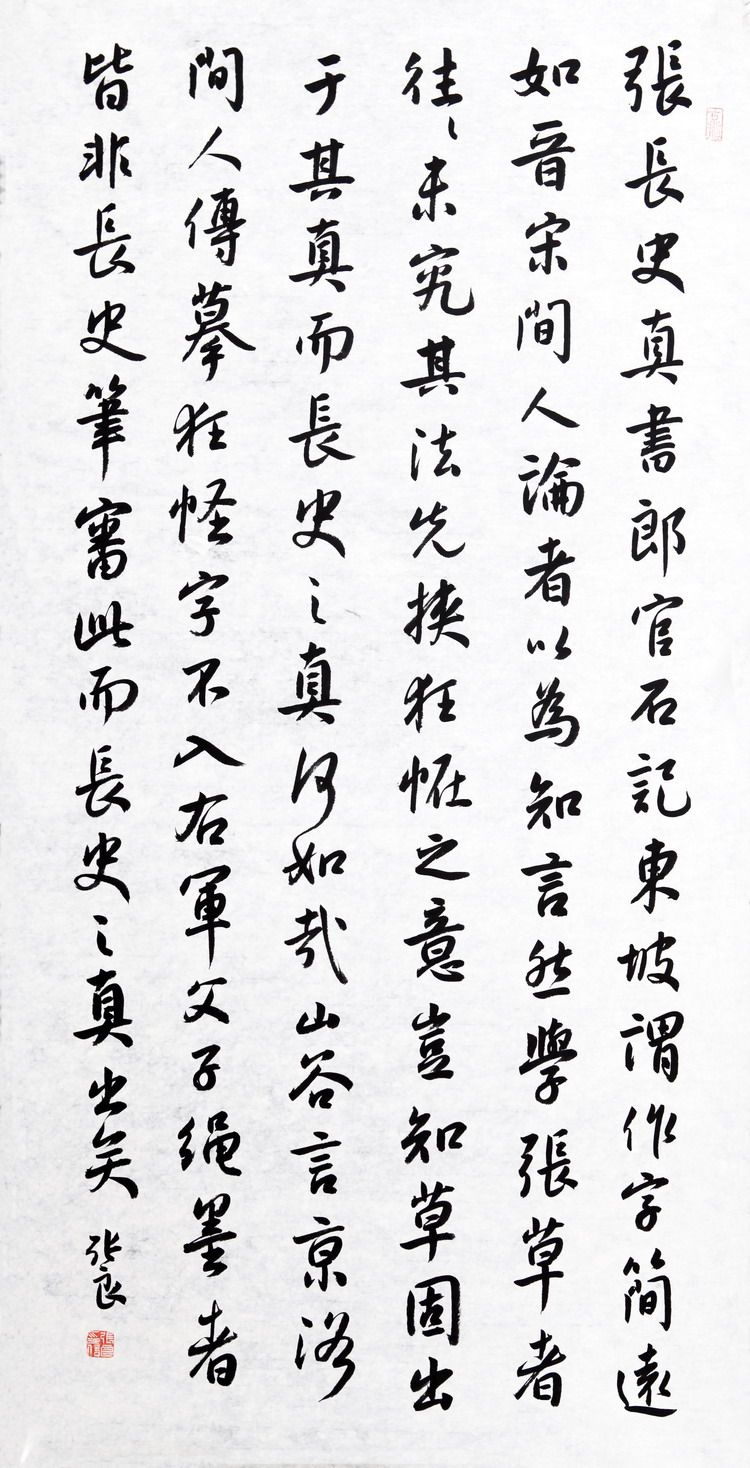 張長史真書郎官石記東坡謂作字簡遠
如晉宋間人論者以為知言然學張草者
往〻未究其法先挾狂怪之意豈知草固出
于其真而長史〻真何如哉山谷言京洛
間人傳摹狂怪字不入右軍父子繩墨者
皆非長史筆審此而長史〻真出矣
張良